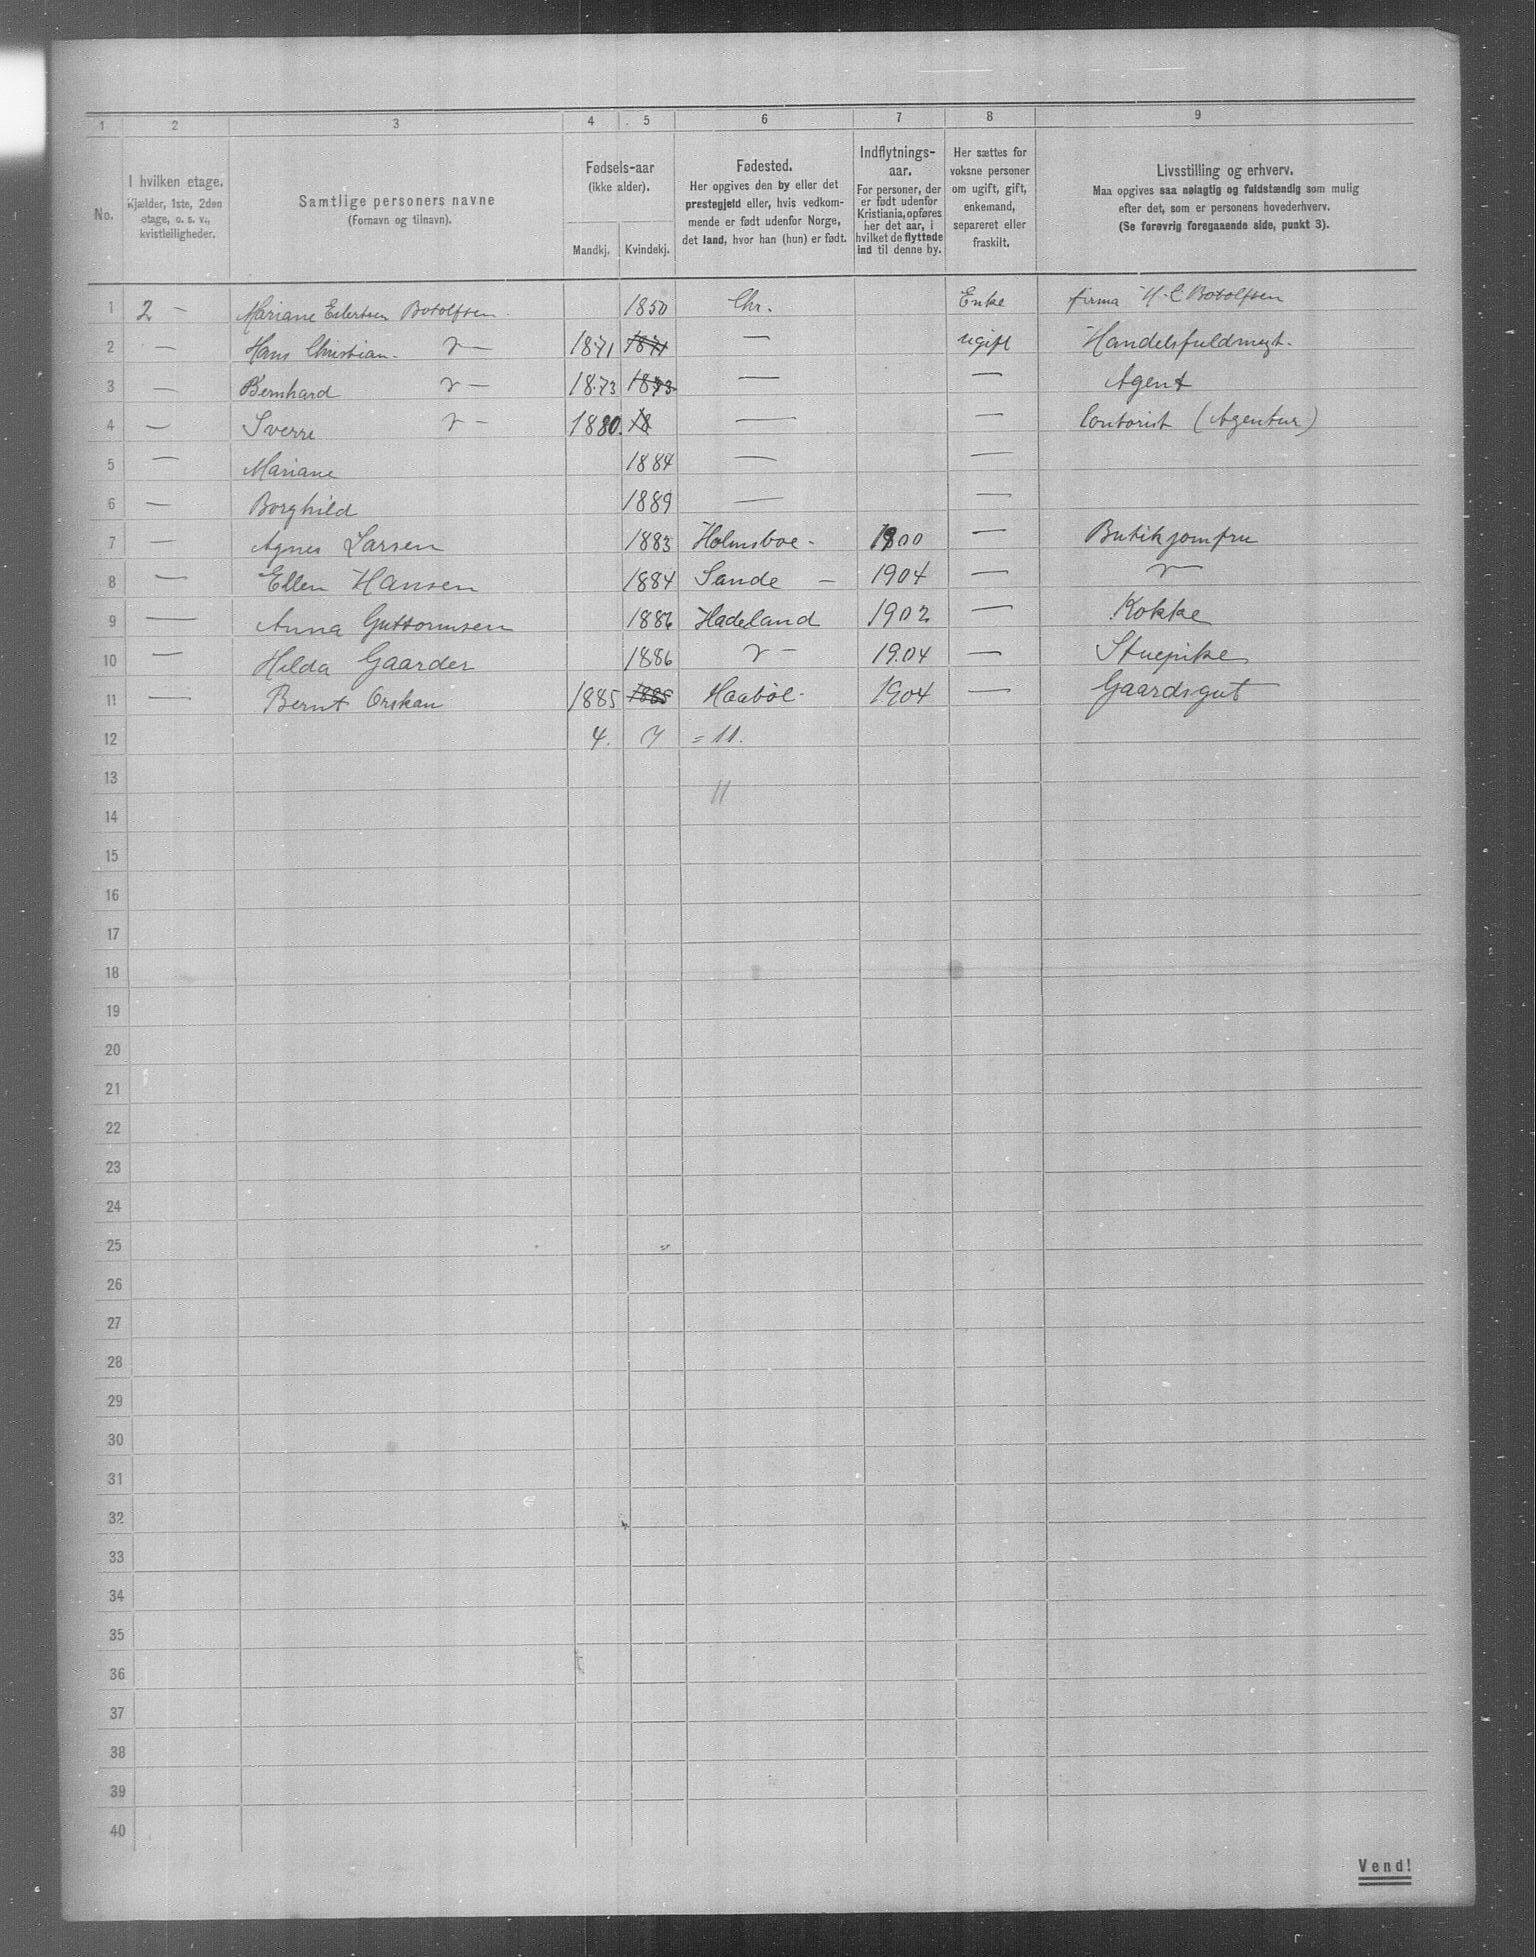 1 2 3 4 5 6 7 8 9
No.
I hvilken etage.
Kjælder, 1ste, 2den
etage, o. s. v.,
kvistleiligheder.
Samtlige personers navne
(Fornavn og tilnavn).
Fødsels-aar
(ikke alder).
Mandkj. Kvindekj.
Fødested.
Her opgives den by eller det
prestegjeld eller, hvis vedkom-
mende er født udenfor Norge,
det land, hvor han (hun) er født.
Indflytnings-
aar.
For personer, der
er født udenfor
Kristiania, opføres
her det aar, i
hvilket de flyttede
ind til denne by.
Her sættes for
voksne personer
om ugift, gift,
enkemand,
separeret eller
fraskilt.
Livsstilling og erhverv.
Maa opgives saa nøiagtig og fuldstændig som mulig
efter det, som er personens hovederhverv.
(Se forøvrig foregaaende side, punkt 3).
1 2 — Mariane Eilertsen Botolfsen 1850 Chr. Enke firma H. C Botolfsen
2 — Hans Christian. — 1871 1871 — ugift Handelsfuldmegt.
3 — Bernhard — 1873 1873 — — Agent
4 — Sverre — 1880. 18 — — Contorist (Agentur)
5 — Mariane 1884 — —
6 — Borghild 1889 — —
7 — Agnes Larsen 1883 Holmsboe - 1900 — Butikjomfru
8 — Ellen Hansen 1884 Sande — 1904 —
9 — Anna Guttormsen 1886 Hadeland 1902 — Kokke
10 — Hilda Gaarder 1886 — 1904 — Stuepike
11 — Bernt Orskau 1885 1885 Haabøl - 1904 — Gaardsgut
12 4. 7 = 11.
13 11
14
15
16
17
18
19
20
21
22
23
24
25
26
27
28
29
30
31
32
33
34
35
36
37
38
39
40
Vend!